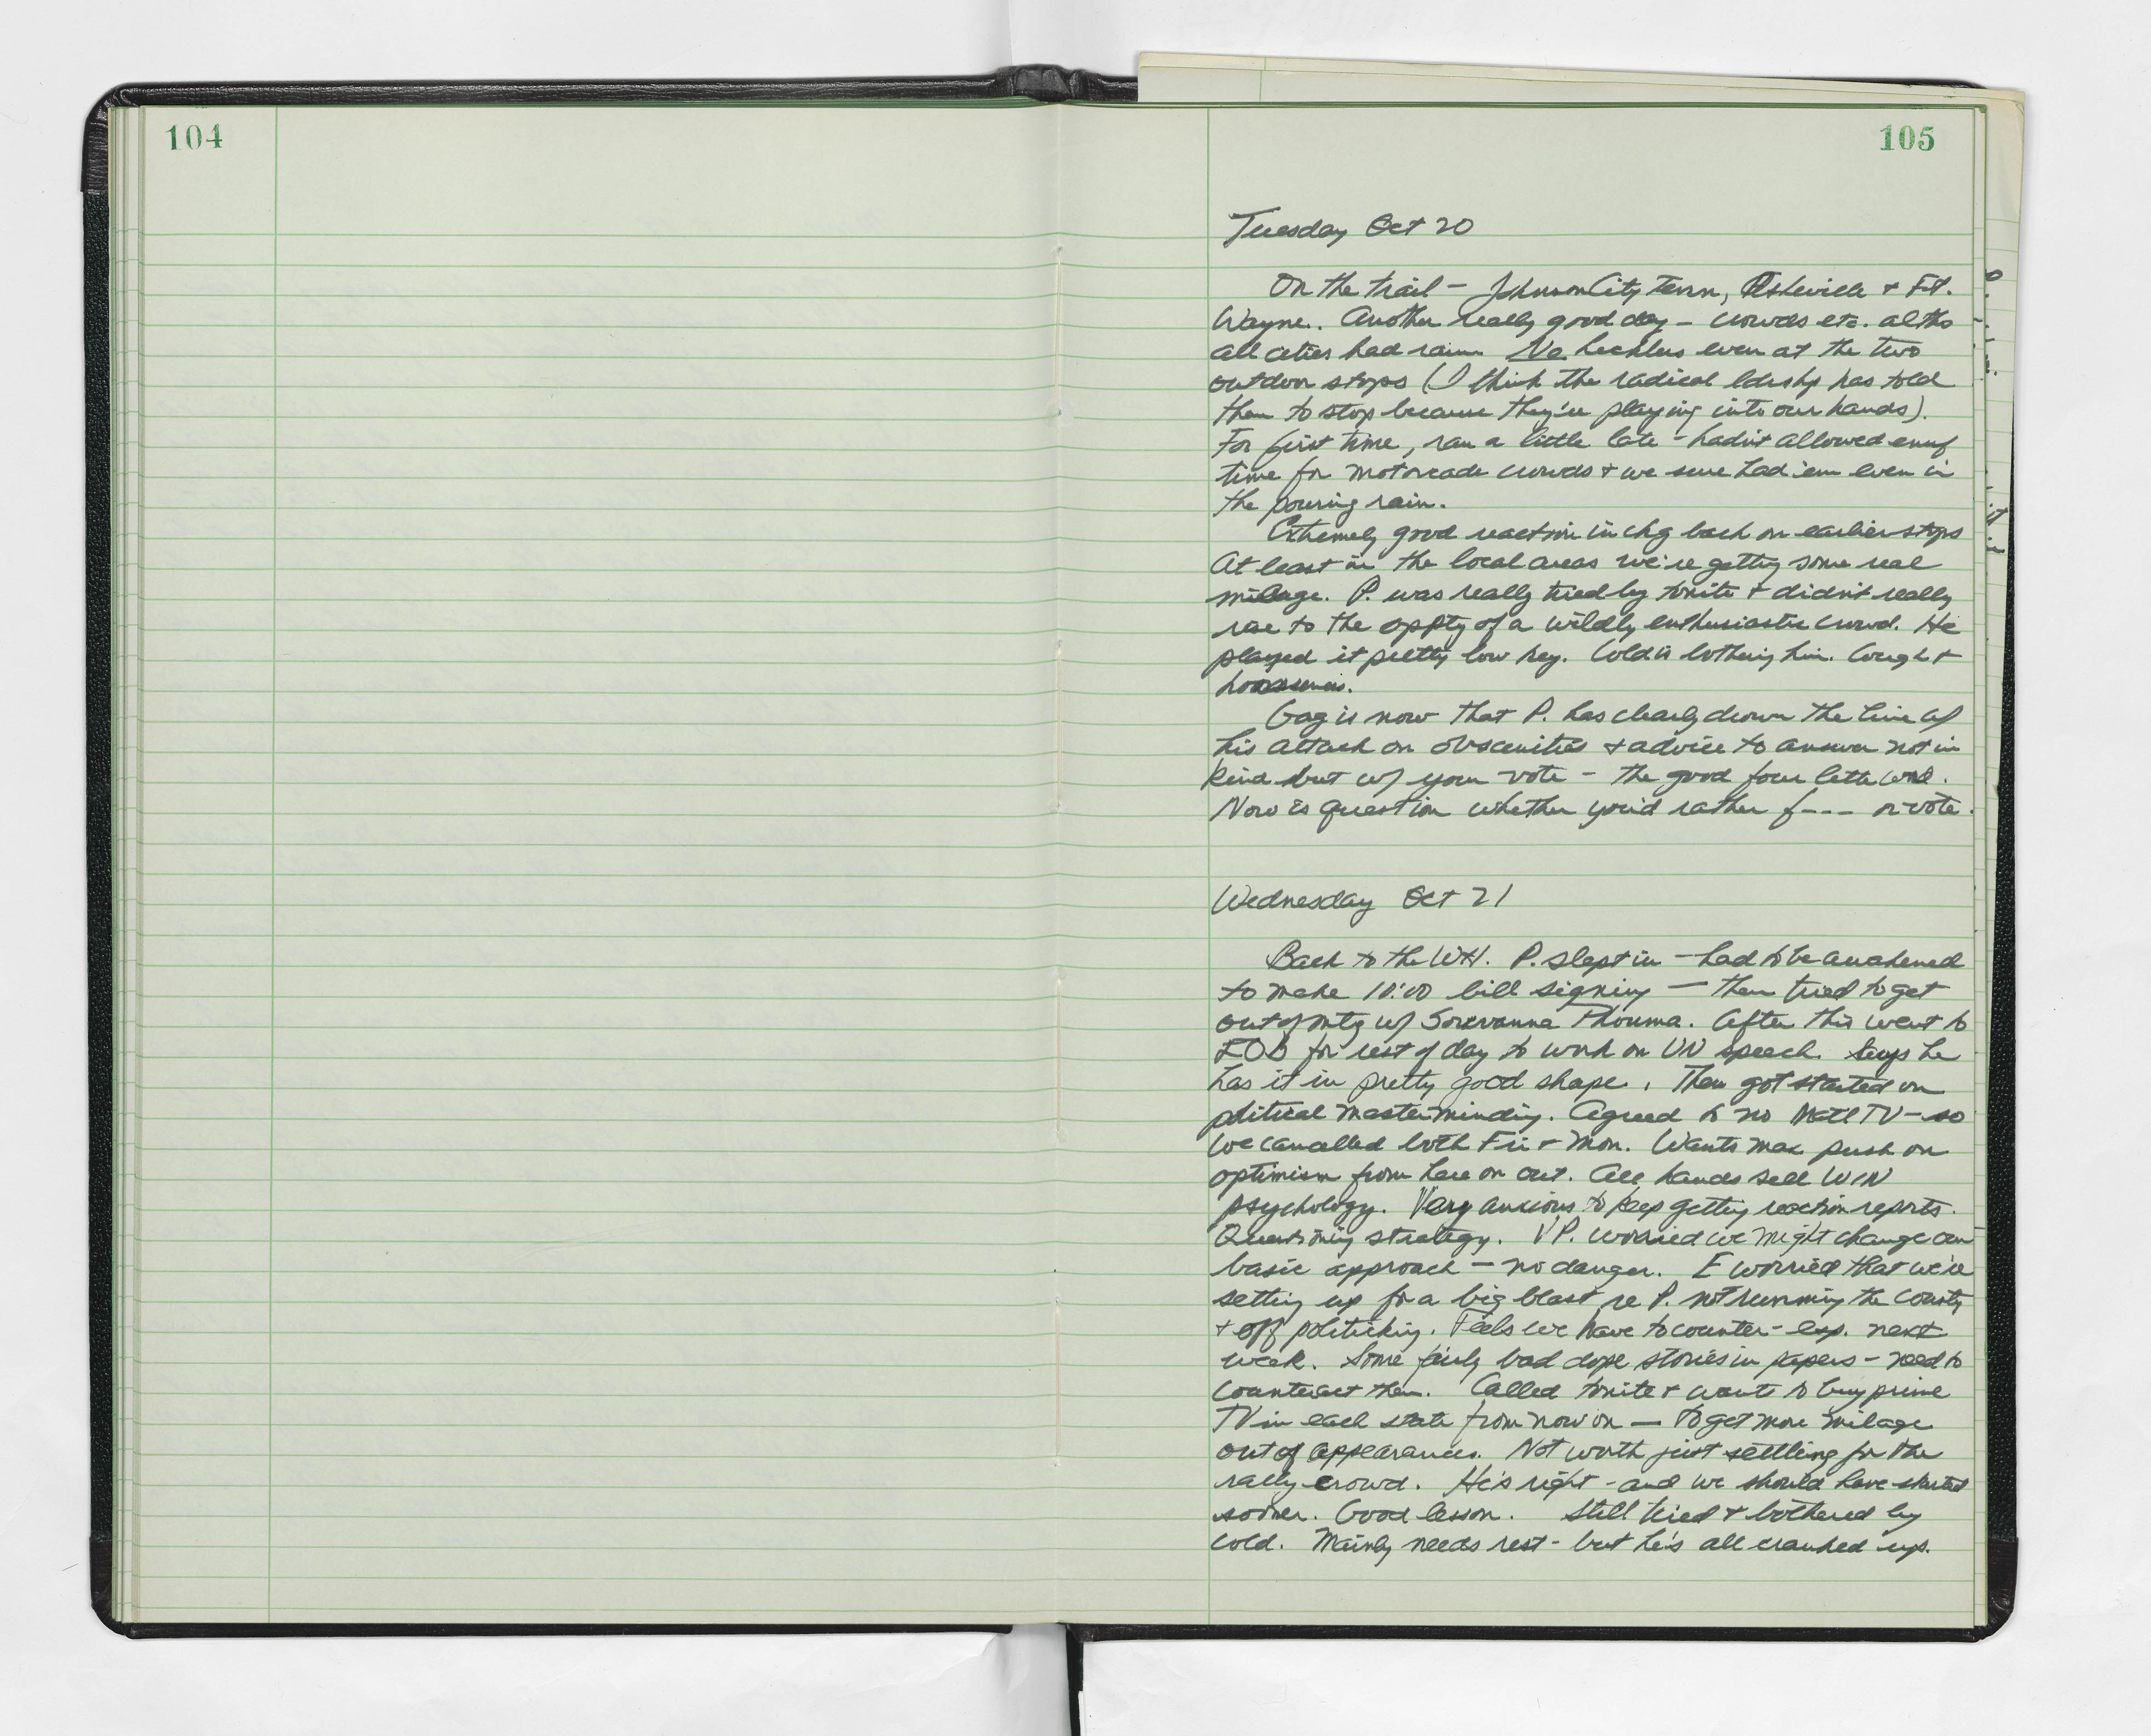 104
105
Tuesday Oct 20
On the trail - Johnson City Tenn, Asheville + Ft.
Wayne. Another really good day - crowds etc. altho
all cities had rain. No hecklers even at the two
outdoor stops (I think the radical ldrshp has told
them to stop because they're playing into our hands).
For first time, ran a little late - hadn't allowed enuf
time for motorcade crowds + we sure had 'em even in
the pouring rain.
Extremely good reaction in chg back on earlier stops
At least in the local areas we're getting some real
milage. P. was really tired by tonite + didn't really
rise to the oppty of a wildly enthusiastic crowd. He
played it pretty low key. Cold is bothering him. Cough +
hoarseness.
Gag is now that P. has clearly drawn the line w/
his attack on obscenities + advice to answer not in
kind but w/ your vote - the good four letter word.
Now is question whether you'd rather f--- or vote.
Wednesday Oct 21
Back to the WH. P. slept in - had to be awakened
to make 10:00 bill signing - then tried to get
out of mtg w/ Souvanna Phouma. After this went to
EOB for rest of day to work on UN speech. Says he
has it in pretty good shape. Then got started on
political masterminding. Agreed to no Natl TV - so
we cancelled both Fri + Mon. Wants max push on
optimism from here on out. All hands sell WIN
psychology. Very anxious to keep getting reaction reports.
Questioning strategy. VP. worried we might change our
basic approach - no danger. E worried that we're
setting up for a big blast re P. not running the country
+ off politicking. Feels we have to counter - esp. next
week. Some fairly bad dope stories in papers - need to
counteract them. Called tonite + wants to buy prime
TV in each state from now on - to get more milage
out of appearances. Not worth just settling for the
rally crowd. He's right - and we should have started
sooner. Good lesson. Still tired + bothered by
cold. Mainly needs rest - but he's all cranked up.